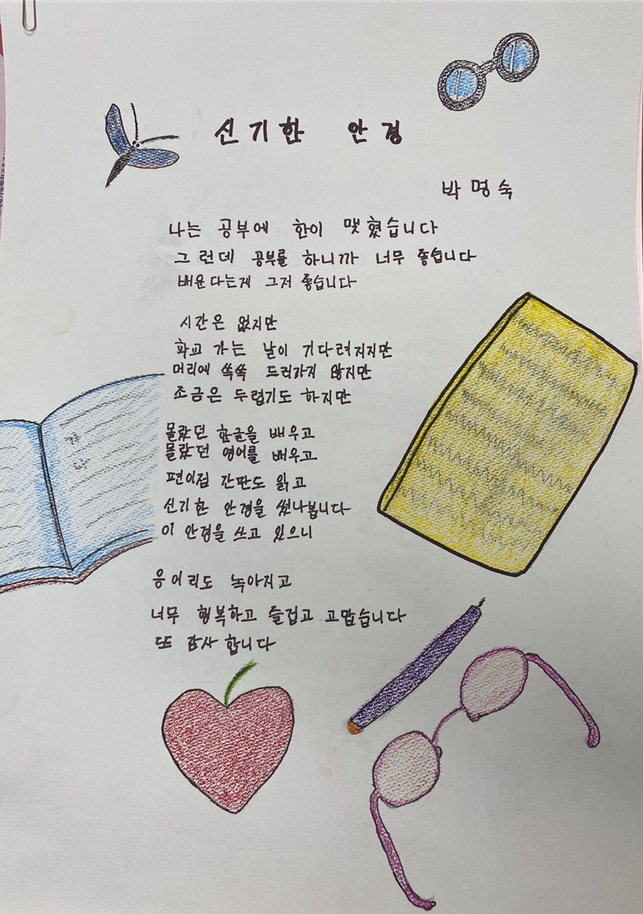 신기한 안경
박명숙
나는 공부에 한이 맺혔습니다
그런데 공부를 하니까 너무 좋습니다
배운다는게 그저 좋습니다
시간은 없지만
학교 가는 날이 기다려지지만
머리에 쏙쏙 드러가지 않지만
조금은 두렵기도 하지만
몰랐던 한글을 배우고
몰랐던 영어를 배우고
편이점 간판도 읽고
신기한 안경을 썼나봅니다
이 안경을 쓰고 있으니
응어리도 녹아지고
너무 행복하고 즐겁고 고맙습니다
또 감사 합니다